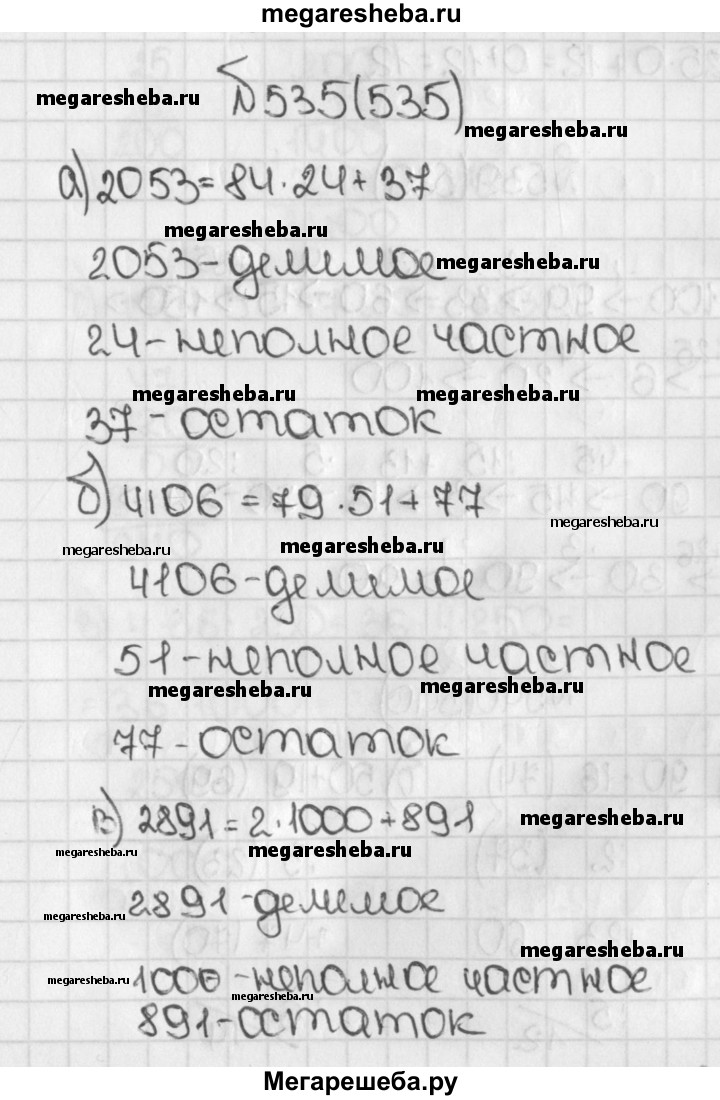 megaresheba.ru
№535(535)
megaresheba.ru
megaresheba.ru
а) 2053=84·24+37
megaresheba.ru
2053-делимое
megaresheba.ru
24-неполное частное
megaresheba.ru megaresheba.ru
37-остаток
б) 4106=79·51+77
megaresheba.ru
megaresheba.ru megaresheba.ru
4106-делимое
51-неполное частное
megaresheba.ru megaresheba.ru
77-остаток
в) 2891=2·1000+891
megaresheba.ru
megaresheba.ru megaresheba.ru
2891-делимое
megaresheba.ru
megaresheba.ru
1000-неполное частное
megaresheba.ru
megaresheba.ru
891-остаток
Мегарешеба.ру